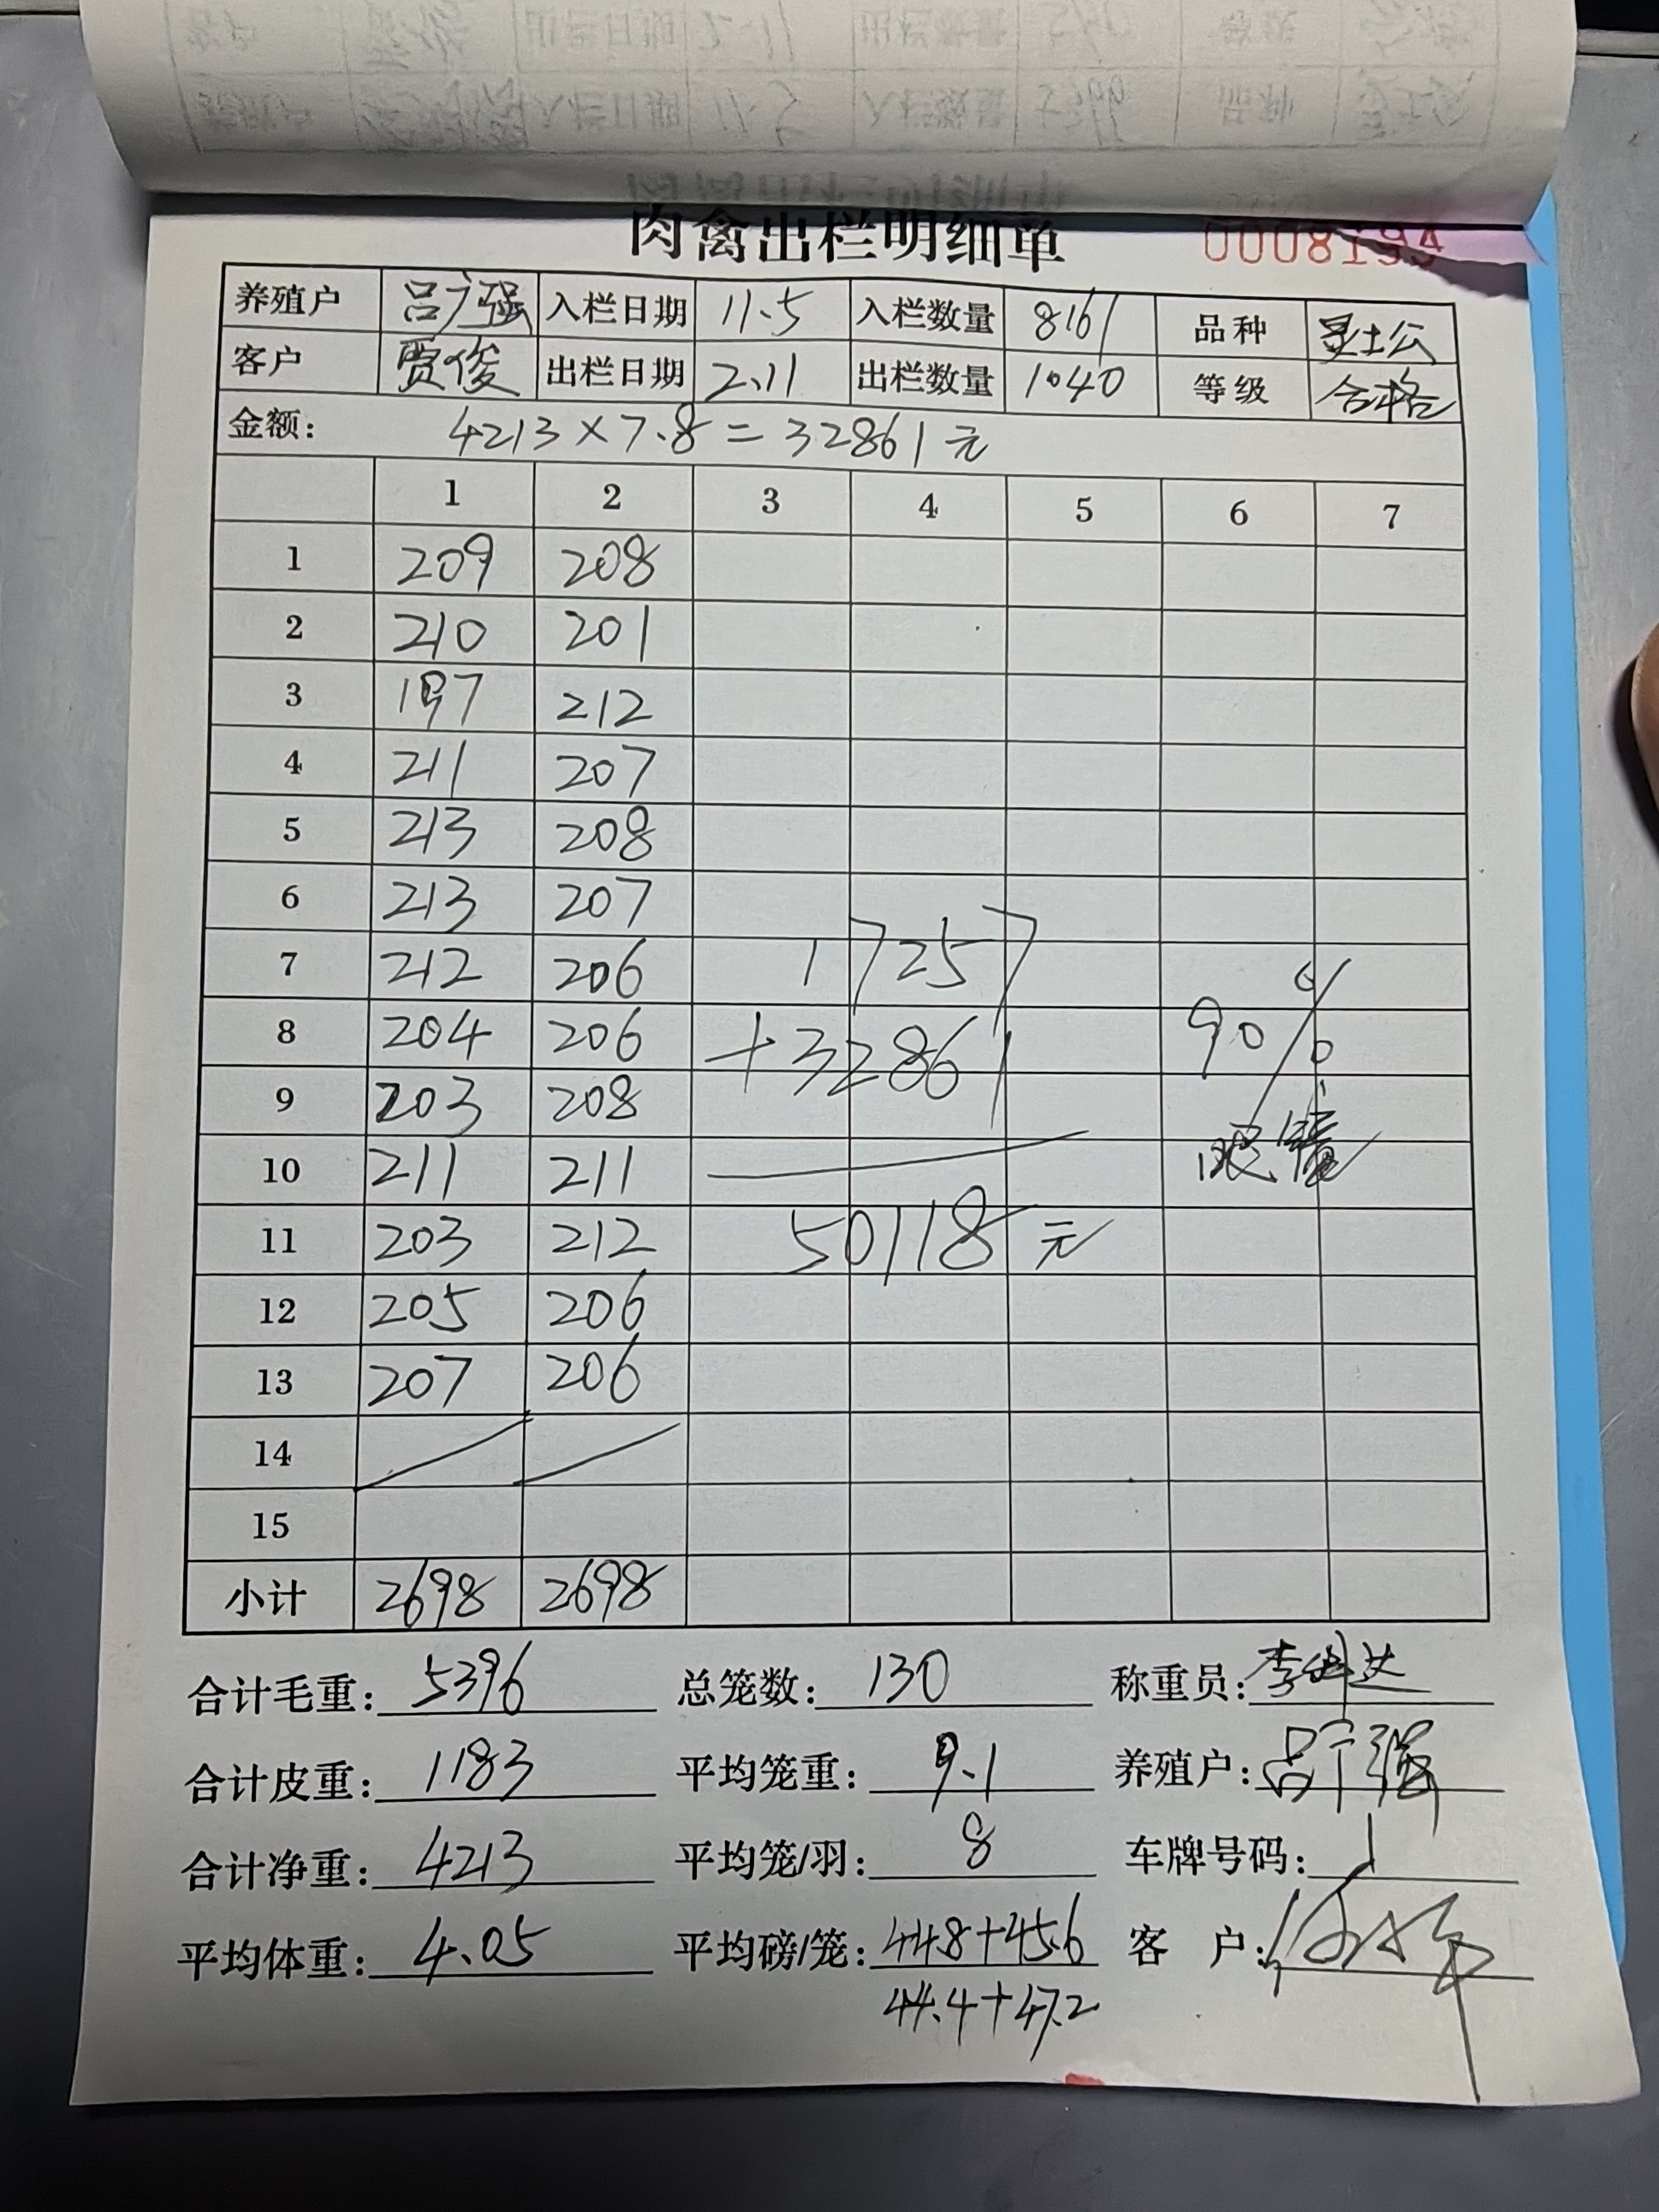 肉禽出栏明细单 0008194
养殖户 吕广强 入栏日期 11.5 入栏数量 8161 品种 灵土公
客户 贾俊 出栏日期 2.11 出栏数量 1040 等级 合格
金额: 4213×7.8=32861元
1 2 3 4 5 6 7
1 209 208
2 210 201
3 197 212
4 211 207
5 213 208
6 213 207
7 212 206 17257
8 204 206 +32861 90%
9 203 208
10 211 211 眼镜
11 203 212 50118元
12 205 206
13 207 206
14
15
小计 2698 2698
合计毛重: 5396 总笼数: 130 称重员: 李
合计皮重: 1183 平均笼重: 9.1 养殖户: 吕广强
合计净重: 4213 平均笼/羽: 8 车牌号码:
平均体重: 4.05 平均磅/笼: 44.8+45.6 客 户:
44.4+47.2